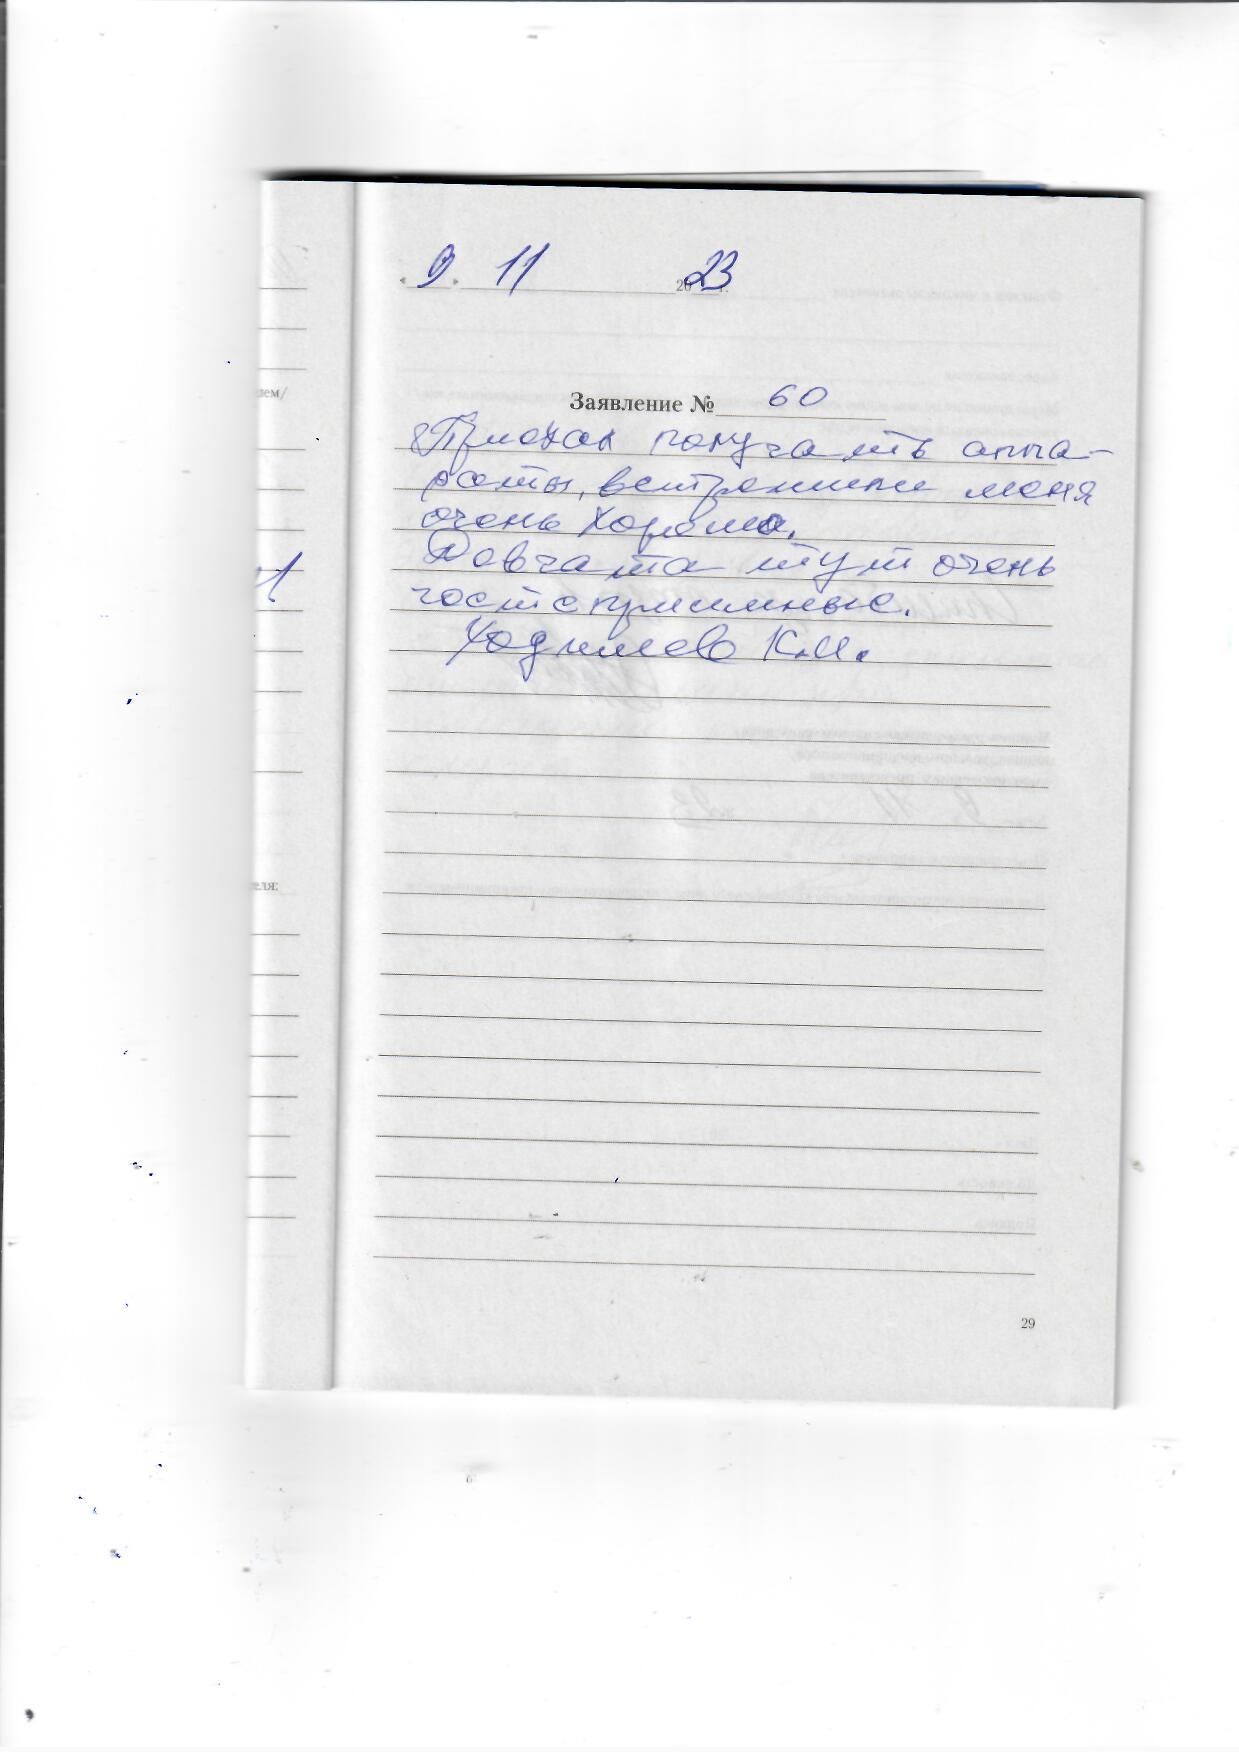 « 9 » 11 2023 г.
лем/
Заявление № 60
Приехал получать аппа-
раты, встретили меня
очень хорошо.
Девчата тут очень
гостеприимные.
К.И.
еля:
29